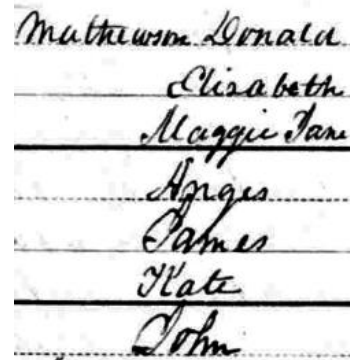 Mathewson Donald
Elizabeth
Maggie Jane
Anges
James
Kate
John